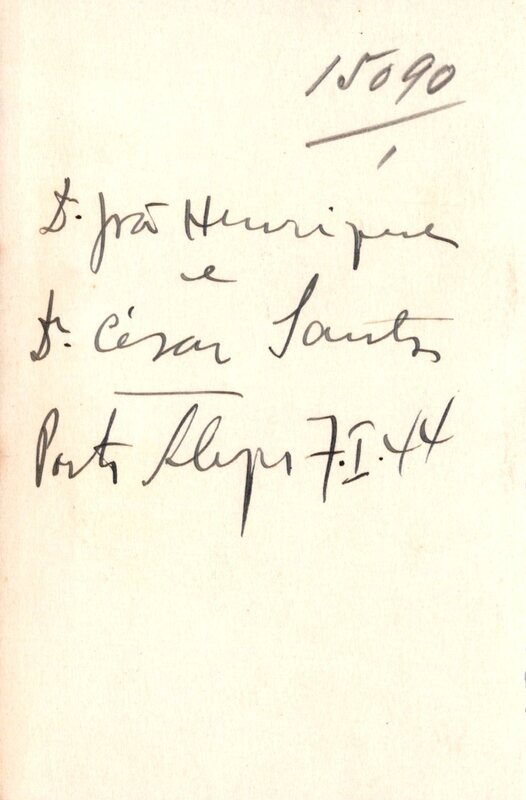 15090
Dr. João Henrique
e
Dr. César Santos
Porto Alegre 7.I.44